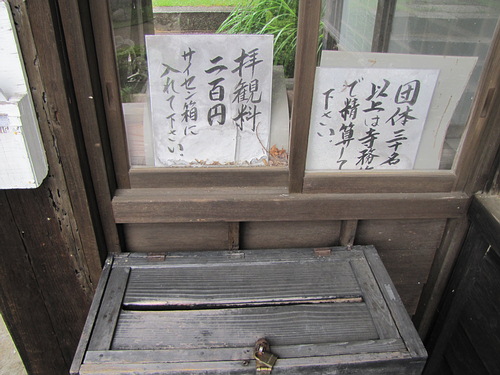 拝観料
二百円
サイセン箱に
入れて下さい
団体三十名
以上は寺務
で精算して
下さい